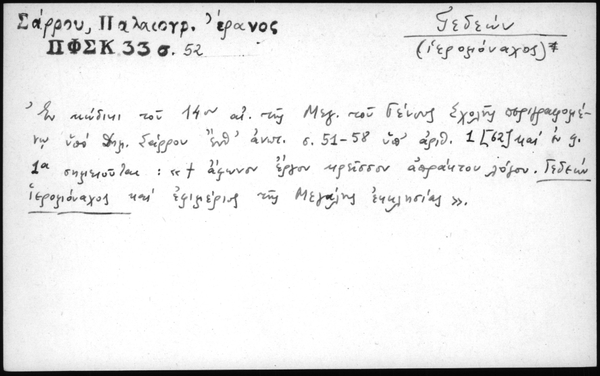 Σάρρου, Παλαιογρ. Ἔρανος
ΠΦΣΚ 33 σ. 52
Γεδεών
(ἱερομόναχος)*
Ἐν κώδικι τοῦ 14ου αἰ. τῆς Μεγ. τοῦ Γένους Σχολῆς περιγραφομέ-
νῳ ὑπὸ Δημ. Σάρρου ἔνθ' ἀνωτ. σ. 51-58 ὑπ' ἀριθ. 1 [62] καὶ ἐν φ.
1α σημειοῦται : «+ ἄφωνον ἔργον κρεῖσσον ἀπράκτου λόγου. Γεδεὼν
ἱερομόναχος καὶ ἐφημέριος τῆς Μεγάλης ἐκκλησίας».